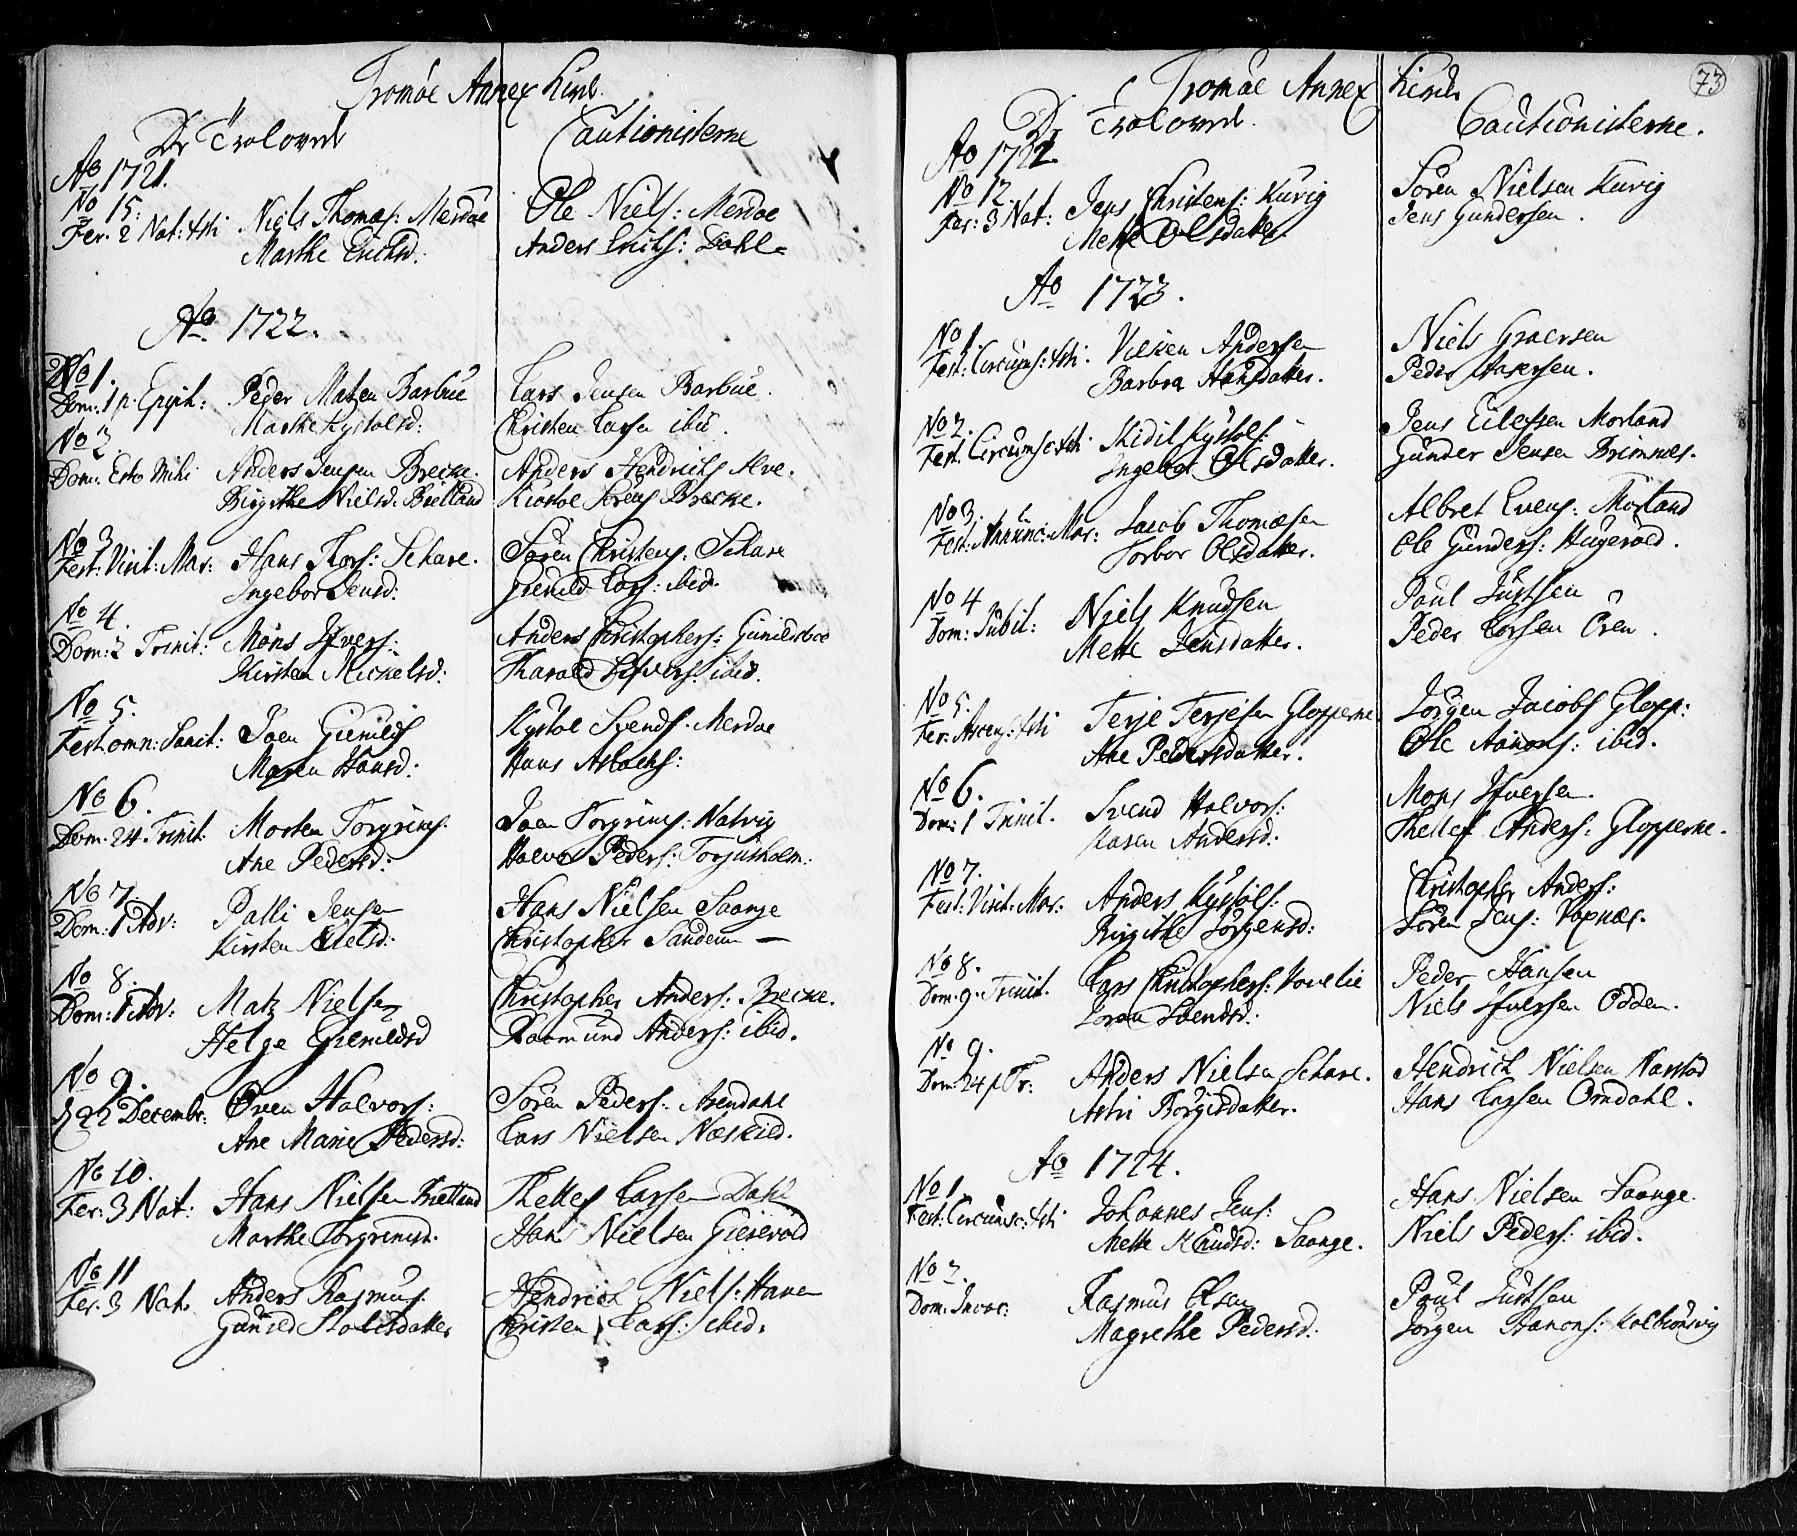 Tromöe Annex Kirch
De Trolovede
Cautionisterne
Ao 1721.
No 15:
Fer. 2 Nat: Xsti
Niels Thomæs: Merdøe
Marthe Erichsd:
Ole Niels: Merdoe
Anders Erichs: Dahl
Ao. 1722.
No 1.
Dom: 1 p. Epiph:
Peder Matzen Barbue
Marthe Kystolsd:
Lars Jensen Barbue.
Christen Larsen ibid.
No 2
Dom: Esto Mihi
Anders Jensen Brecke.
Birgithe Nielsd: Bielland
Anders Hendrichs Alve.
Kiostol Sörens Brecke.
No 3
Fest: Visit: Mar:
Hans Thors: Schare.
Ingebor Jensd:
Sören Christens: Schare
Giemild Lars: ibid.
No 4.
Dom: 2 Trinit:
Mons Ifvers:
Kirsten Mickelsd:
Anders Christophers:
Harald Sifvers: ibid.
No 5.
Fest: omn: Sanct:
Joen Giemilds
Maren Hansd:
Kystol Svends: Merdoe
Hans Aslachs:
No 6.
Dom. 24. Trinit.
Morten Torgrims.
Ane Pedersd:
Joen Torgrims: Hatvig
Halvor Peders: Torjusholm:
No 7
Dom: 1 Adv:
Palli Jensen
Kirsten
Hans Nielsen Saange
Christopher Sandum
No 8.
Dom: 1 Adv:
Matz Nielsen
Helge Giemildsd
Christopher Anders: Brecke.
Raamund Anders: ibid.
No 9.
d 22 Decembr:
Even Halvors:
Ane Marie Pedersd:
Sören Peders: Arendahl
Lars Nielsen Næskild.
No 10.
Fer: 3 Nat:
Hans Nielsen Bielland
Marthe Torgrimsd.
Thellef Larsen Dahl
Hans Nielsen Gierevold
No 11
Fer. 3 Nat.
Anders Rasmus.
Gunild Stolisdatter
Hendrich Niels: Have
Christen Lars: ibid.
73
Tromöe Annex Kirch
De Trolovede.
Cautionisterne.
Ao 1722.
No 12.
Fer: 3 Nat:
Jens Christens: Kuvig
Mette Olsdatter.
Sören Nielsen Kuvig
Jens Gundersen.
Ao 1723.
No 1.
Fest: Circums: Xsti.
Villen Andersen
Barbra Hansdatter.
Niels Graersen
Peder Aasersen.
No 2.
Fest. Circumsc: Xsti
Kidil Kystols:
Ingebor Olsdatter.
Jens Eilefsen Morland
Gunder Jensen Brimnes.
No 3.
Fest: Annunc: Mar:
Jacob Thomæsen
Torbor Olsdatter.
Albret Evens: Morland
Ole Gunders: Hugevold.
No 4
Dom: Jubil:
Niels Knudsen
Mette Jensdatter.
Poul Justsen
Peder Larsen Ören.
No 5.
Fer: Ascens: Xsti
Terje Terjesen Glopperne
Ane Pedersdatter.
Jörgen Jacobs Glopp:
Ole Aanons: ibid.
No 6.
Dom: 1 Trinit.
Svend Halvors:
Karen Andersd:
Mons Ifversen.
Thellef Anders: Glopperne.
No 7.
Fest: Visit: Mar:
Anders Kystols:
Birgithe Jörgensd:
Christopher Anders:
Sören Jens: Vapnæs.
No 8.
Dom. 9. Trinit.
Lars Christophers:
Joran Svendsd:
Peder Hansen
Niels Ifversen Odden.
No 9.
Dom: 24 p Tr:
Anders Nielsen Schare.
Astri Borgisdatter.
Hendrich Nielsen Narstod
Hans Larsen Omdahl.
Ao 1724.
No 1
Fest: Circumsc: Xsti
Johannes Jens:
Mette Knudsd: Saange.
Hans Nielsen Saange.
Niels Peders: ibid.
No 2.
Dom: Invoc:
Rasmus Olsen
Magrethe Pedersd:
Poul Justsen
Jörgen Aanons: Kolbiönsvig